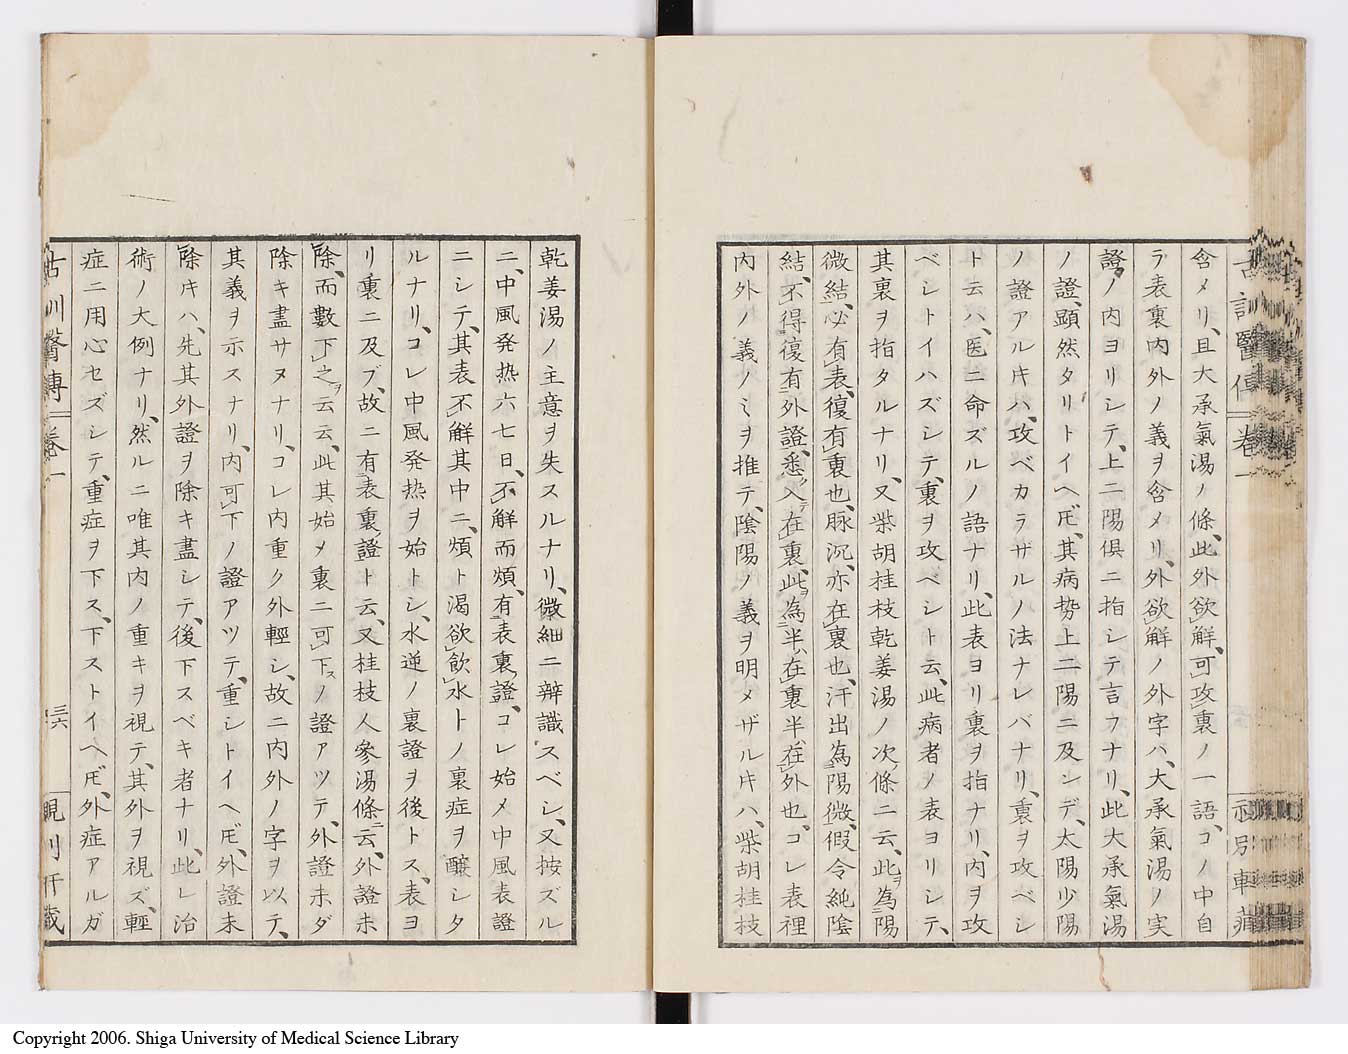 含メリ、且大承氣湯ノ條、此外欲解、可攻裏ノ一語、コノ中自
ラ表裏内外ノ義ヲ含メリ、外欲解ノ外字ハ、大承氣湯ノ実
證ノ内ヨリシテ、上二陽倶ニ指シテ言フナリ、此大承氣湯
ノ證、顕然タリトイヘ𪜈、其病势上二陽ニ及シデ、太陽少陽
ノ證アルキハ、攻ベカラザルノ法ナレバナリ、裏ヲ攻ベシ
ト云ハ、医ニ命ズルノ語ナリ、此表ヨリ裏ヲ指ナリ、内ヲ攻
ベシトイハズシテ、裏ヲ攻ベシト云、此病者ノ表ヨリシテ、
其裏ヲ指タルナリ、又柴胡桂枝乾姜湯ノ次條ニ云、此ヲ為陽
微結、必有表、復有裏也、脉沉、亦在裏也、汗出為陽微、假令純陰
結、不得復有外證、悉入テ在裏、此ヲ為半在裏半在外也、コレ表裡
内外ノ義ノミヲ推テ、陰陽ノ義ヲ明メザルキハ、柴胡桂枝
乾姜湯ノ主意ヲ失スルナリ、微細ニ辨識スベシ、又按ズル
ニ、中風発热六七日、不解而煩、有表裏證、コレ始メ中風表證
ニシテ、其表不解其中ニ、煩ト渴欲飲水トノ裏症ヲ醸シタ
ルナリ、コレ中風発热ヲ始トシ、水逆ノ裏證ヲ後トス、表ヨ
リ裏ニ及ブ、故ニ有表裏證ト云、又桂枝人參湯條ニ云、外證未
除、而數下之ヲ云云、此其始メ裏ニ可下スノ證アツテ、外證未ダ
除キ盡サヌナリ、コレ内重ク外輕シ、故ニ内外ノ字ヲ以テ、
其義ヲ示スナリ、内可下ノ證アツテ、重シトイヘ𪜈、外證未
除キハ、先其外證ヲ除キ盡シテ、後下スベキ者ナリ、此レ治
術ノ大例ナリ、然ルニ唯其内ノ重キヲ視テ、其外ヲ視ズ、輕
症ニ用心セズシテ、重症ヲ下ス、下ストイヘ𪜈、外症アルガ
古訓醫傳 卷一
三六
Copyright 2006. Shiga University of Medical Science Library